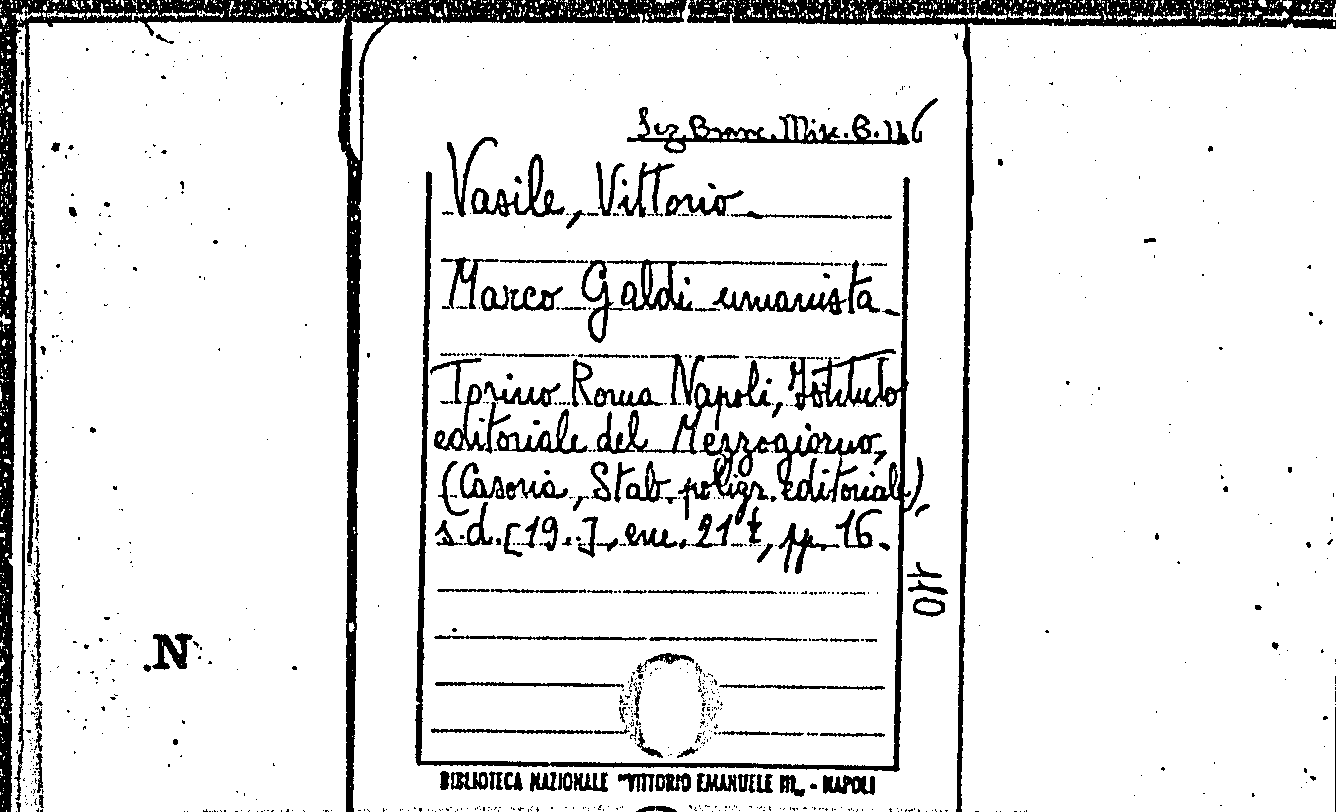 Sez. Branc. Misc. B. 116
Vasile, Vittorio.
Marco Galdi umanista.
Torino Roma Napoli, Istituto
editoriale del Mezzogiorno,
(Casoria, Stab. poligr. editoriale),
s.d. [19..], cm. 21½, pp. 16.
110
N
BIBLIOTECA NAZIONALE "VITTORIO EMANUELE III„ - NAPOLI